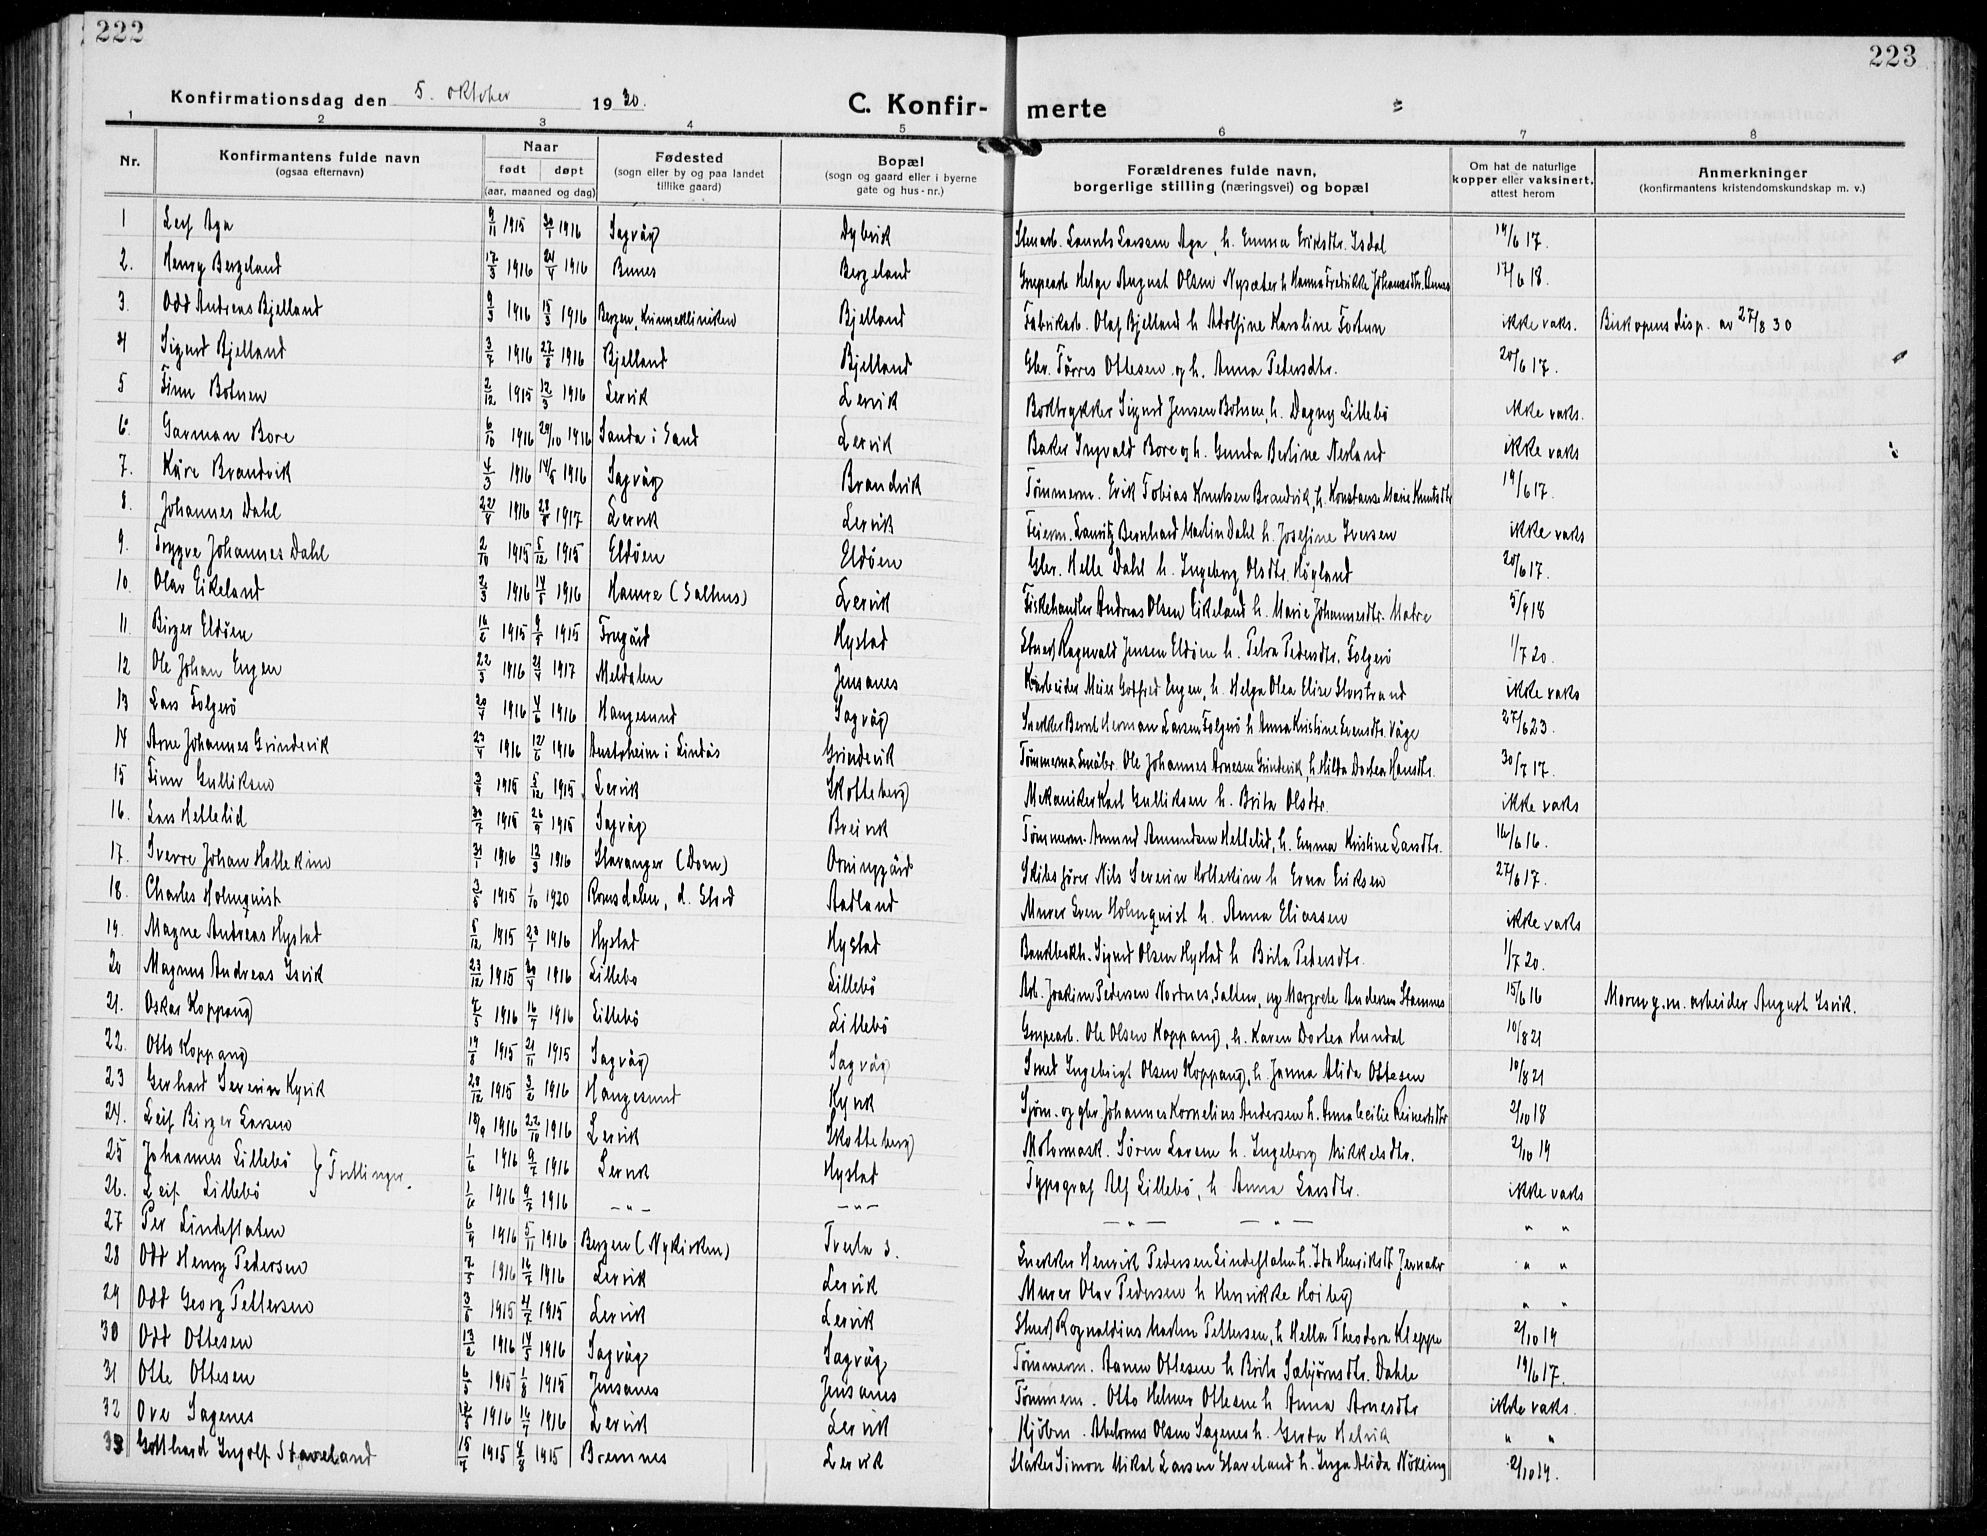 222
223
Konfirmationsdag den 5. oktober 1930.
C. Konfir- merte
1 2 3 4 5 6 7 8
Nr.
Konfirmantens fulde navn
(ogsaa efternavn)
Naar
født døpt
(aar, maaned og dag)
Fødested
(sogn eller by og paa landet
tillike gaard)
Bopæl
(sogn og gaard eller i byerne
gate og hus-nr.)
Forældrenes fulde navn,
borgerlige stilling (næringsvei) og bopæl
Om hat de naturlige
kopper eller vaksinert,
attest herom
Anmerkninger
(konfirmantens kristendomskundskap m. v.)
1 Leif Aga 9/11 1915 30/1 1916 Sagvåg Dybvik Stenarb. Laurits Larsen Aga, h. Emma Eriksdtr. Isdal 19/6 17.
2. Henry Bergeland 17/3 1916 24/4 1916 Bergeland Helge August Olsen Nysæter h. Hanna Fredrikke Johannesdtr. 17/6 18.
3. Odd Andreas Bjelland 1916 1916 Bergen, Kvinneklinikken Bjelland Fabrikarb. Olaf Bjelland h. Adolfine Karoline Fortun ikke vaks. Biskopens disp. av 27/8 30
4 Sigurd Bjelland 3/7 1916 27/8 1916 Bjelland Bjelland Gbr. Tørres Ottesen og h. Anna Pedersdtr. 20/6 17.
5 Finn Botnen 2/12 1915 12/3 1916 Lervik Lervik Boktrykker Sigurd Jensen Botnen, h. Dagny Lillebö ikke vaks.
6. Garman Bore 6/10 1916 29/10 1916 Sanda i Sand Lervik Baker Ingvald Bore og h. Gunda Bertine Nerland ikke vaks
7. Kåre Brandvik 4/3 1916 14/5 1916 Sagvåg Brandvik Tömmerm. Erik Tobias Knutsen Brandvik, h. Konstanse Marie Knutsdtr 19/6 17.
8. Johannes Dahl 22/8 1916 1917 Lervik Lervik Feierm. Lauritz Bernhard Martin Dahl h. Josefine Iversen ikke vaks
9. Trygve Johannes Dahl 2/10 1915 5/12 1915 Eldöen Eldöen Gbr. Helle Dahl h. Ingeborg Olsdtr. Högland 20/6 17.
10. Olav Eikeland 1916 14/5 1916 Hamre (Salhus) Lervik Fiskehandler Andreas Olsen Eikeland h. Marie Johannesdtr. Matre 5/9 18
11. Birger Eldöen 16/6 1915 1915 Frugård Hystad Ragnvald Jensen Eldöen h. Petra Pedersdtr. Folgerö 1/7 20.
12 Ole Johan Engen 22/5 1916 21/4 1917 Meldalen Jensanes Meier Godfred Engen, h. Helga Olea Elise Storstrand ikke vaks
13 Lars Folgerö 20/4 1916 4/6 1916 Haugesund Sagvåg Snekker Bernt Herman Larsen Folgerö h. Anna Kristine Svensdtr. Våge 27/6 23.
14 Arne Johannes Grindevik 23/4 1916 12/6 1916 Austrheim i Lindås Grindevik Ole Johannes Arnesen Grindevik, h. Hilda Dortea Hansdtr. 30/7 17.
15 Finn Gulliksen 3/9 1915 5/12 1915. Lervik Skotteberg Mekaniker Karl Gulliksen h. Brita Olsdtr. ikke vaks
16. Lars Hettelid 30/7 1915 26/9 1915 Sagvåg Breivik Tömmerm. Amund Amundsen Hettelid, h. Emma Kristine Larsdtr. 16/6 16.
17. Sverre Johan Hollekim 31/1 1916 12/3 1916 Stavanger (Dom) Orninggård Skibsförer Nils Severin Hollekim h. Erna Eriksen 27/6 17.
18. Charles Holmquist 3/5 1915 1/10 1920 Romsdalen, d. Stord Aadland Murer Sven Holmquist h. Anna Eliassen ikke vaks
19. Magne Andreas Hystad 5/12 1915 23/1 1916 Hystad Hystad Bankbokh. Sigurd Olsen Hystad h. Brita Pedersdtr. 1/7 20.
20 Magnus Andreas Isvik 23/12 1915 30/4 1916 Lillebö Lillebö Arb. Joakim Pedersen Nordnes, Salten, og Margrete Andersen Stamnes 15/6 16 Moren g. m. arbeider August Isvik.
21. Oskar Koppang 1916 16/7 1916 Lillebö Lillebö Grupearb. Ole Olsen Koppang, h. Karen Dortea Hundal 10/8 21
22. Otto Koppang 19/8 1915 21/11 1915 Sagvåg Sagvåg Smed Ingebrigt Olsen Koppang, h. Janna Alida Ottesen 10/8 21
23 Gerhard Severin Kyvik 28/12 1915 1916 Haugesund Kyvik Sjöm. og gbr. Johannes Kornelius Andersen h. Anna Cecilie Reinertsdtr 2/10 18
24. Leif Birger Larsen 18/9 1916 22/10 1916 Lervik Skotteberg Motormask. Sören Larsen h. Ingeborg Mikkelsdtr. 2/10 19
25 Johannes Lillebö } Tvillinger. 1/6 1916 9/7 1916 Lervik Hystad Typograf Alf Lillebö, h. Anna Larsdtr. ikke vaks
26. Leif Lillebö 1/6 1916 9/7 1916 — " — — " — — " — — " — " "
27 Per Lindeflaten 6/9 1916 5/11 1916 Bergen (Nykirken) Tveita 3. Snekker Henrik Pedersen Lindeflaten h. Ida Henriksdt Jernaker " "
28 Odd Henry Pedersen 1916 16/7 1916 Lervik Lervik Murer Olav Pedersen h. Henrikke Hoiby " "
29 Odd Georg Pettersen 3/6 1915 4/7 1915 Lervik Lervik Rognaldius Martin Pettersen, h. Hella Theodora Kleppe 2/10 19
30 Odd Ottesen 13/2 1916 14/5 1916 Sagvåg Sagvåg Tömmerm. Aanen Ottesen h. Brita Sæbjörnsdtr. Dahle 19/6 17.
31 Otte Ottesen 6/5 1915 1/8 1915 Jensanes Jensanes Tömmerm. Otto Helmer Ottesen h. Anna Arnesdtr ikke vaks.
32 Ove Sagenes 1916 16/7 1916 Lervik Lervik Kjöbm. Olsen Sagenes h. Gerda Helvik " "
33 Gotthard Ingolf Staveland 15/7 1915 1915 Bremnes Lervik Simon Mikal Larsen Staveland h. Inga Alida Nökling 2/10 19.